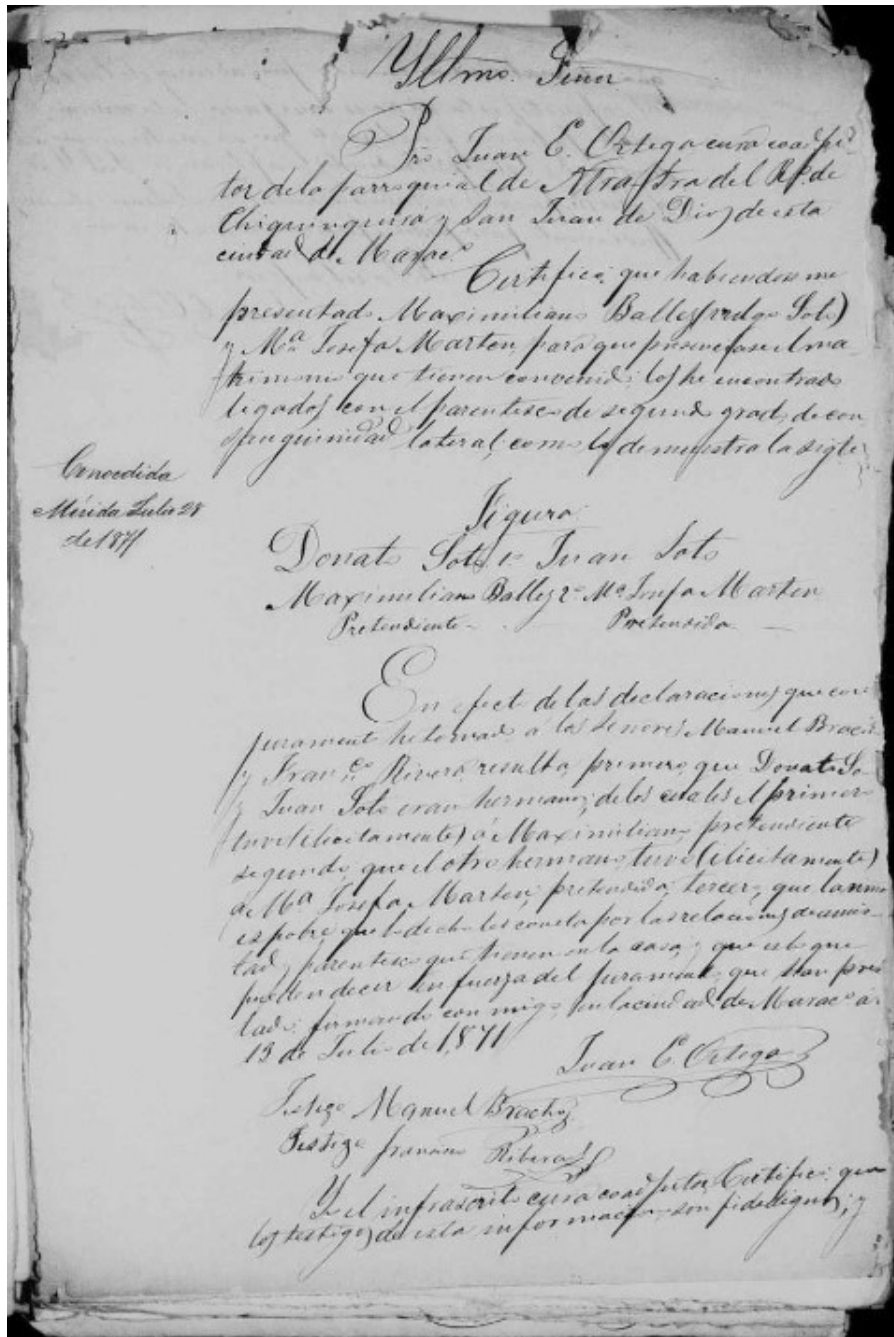 Yltmo. Señor
Pro. Juan E. Ortega cura coadju-
tor de la parroquial de Ntra Stra del Ro. de
Chiquinquirá y San Juan de Dios de esta
ciudad de Maraco.
Certifico: que habiendoseme
presentado Maximiliano Ballesteros Soto
y Ma. Josefa Marten, para que presenciase el ma-
trimonio que tienen convenido; los he encontrado
ligados con el parentesco de segundo grado de con-
sanguinidad lateral, como lo demuestra la sigte.
Concedida
Mérida Julio 28
de 1871
Figura
Donato Soto 1o. Juan Soto
Maximiliano 2o. Ma. Josefa Marten
Pretendiente - Pretendida -
En efecto de las declaraciones que con
juramento he tomado á los Señores Manuel Bracho
y Franco. Rivera, resulta, primero, que Donato So-
y Juan Soto eran hermanos; de los cuales el primero
tuvo (ilicitamente) á Maximiliano, pretendiente
segundo, que el otro hermano tuvo (ilicitamente)
á Ma. Josefa Marten, pretendida; tercero, que la
es pobre, que lo dicho les consta por las relaciones de amis-
tad y parentesco que tienen en la casa, y que es lo que
pueden decir en fuerza del juramento que han pres
tado; firmando con migo en la ciudad de Maraco. á
13 de Julio de 1871
Juan E. Ortega
Testigo Manuel Bracho
Testigo Ribera
Yo el infrascrito cura coadjutor Certifico: que
los testigos de esta informacion son fidedignos; y